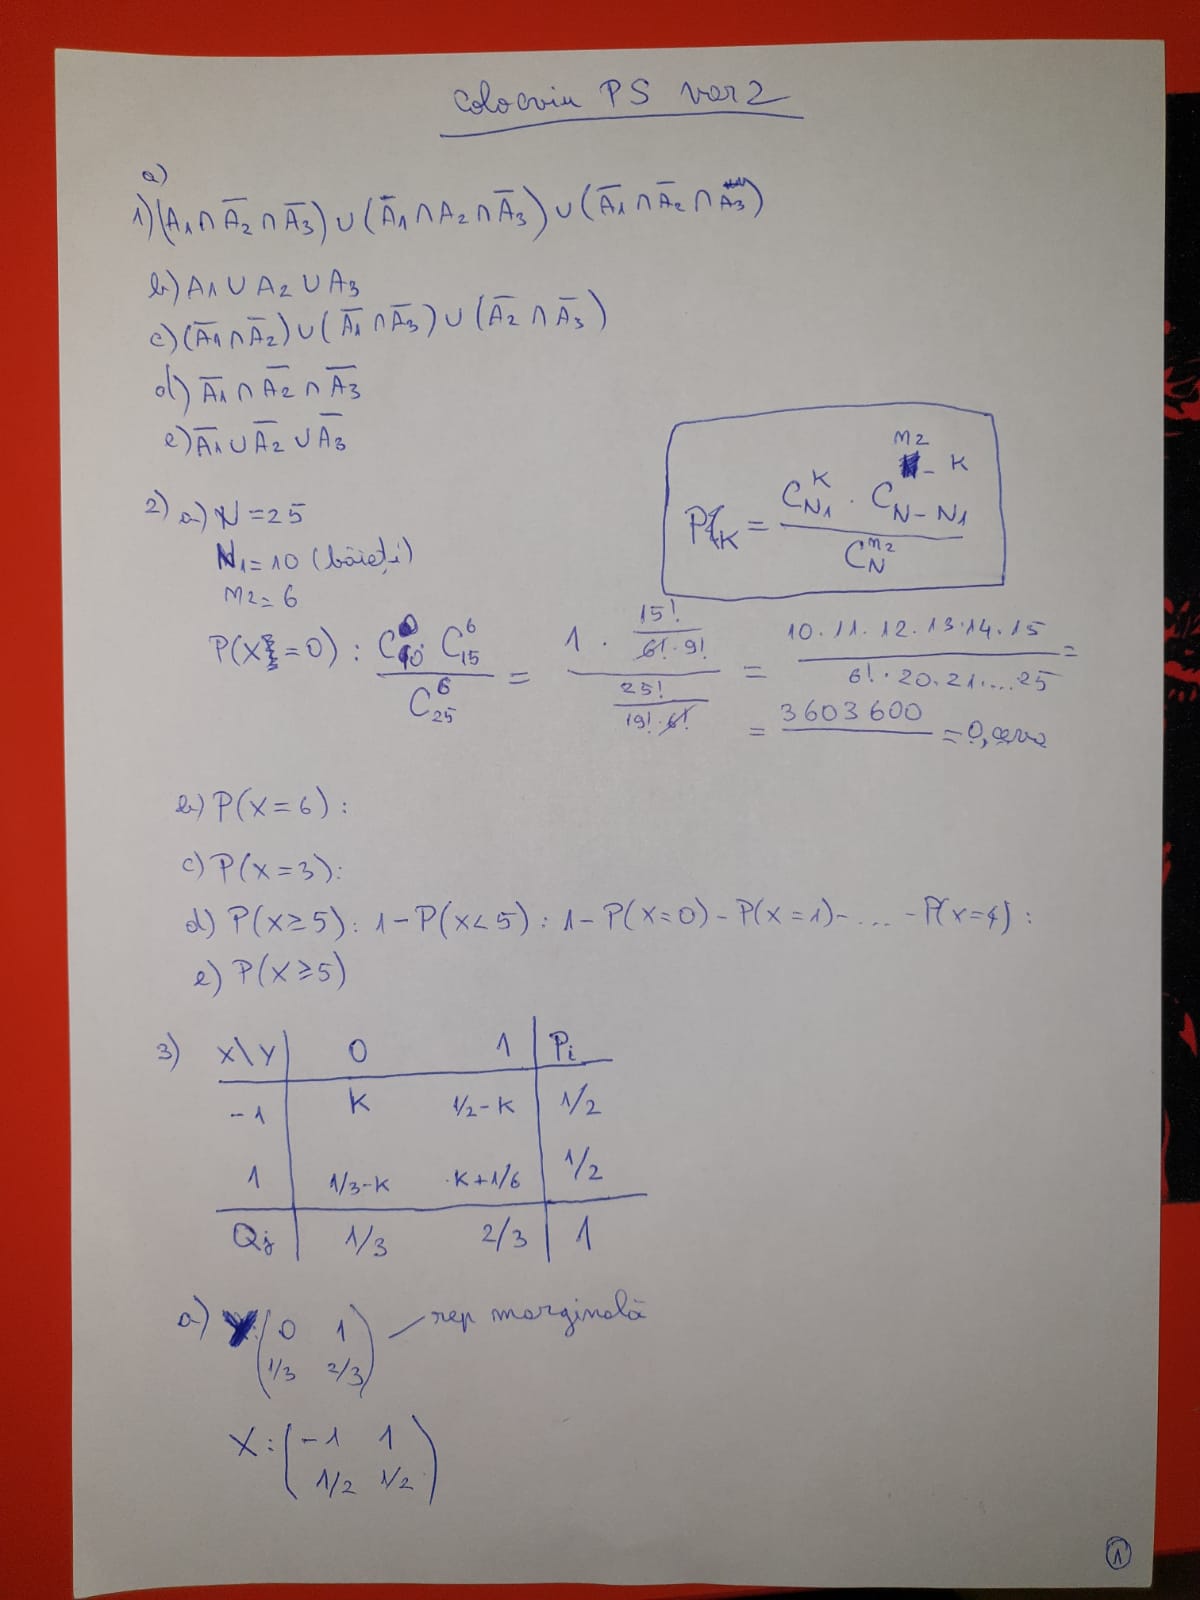 Colocviu PS var 2
a)
1) (A₁ ∩ A̅₂ ∩ A̅₃) ∪ (A̅₁ ∩ A₂ ∩ A̅₃) ∪ (A̅₁ ∩ A̅₂ ∩ A̅₃)
b) A₁ ∪ A₂ ∪ A₃
c) (A̅₁ ∩ A̅₂) ∪ (A̅₁ ∩ A̅₃) ∪ (A̅₂ ∩ A̅₃)
d) A̅₁ ∩ A̅₂ ∩ A̅₃
e) A̅₁ ∪ A̅₂ ∪ A̅₃
P_K = (C_{N1}^{K} · C_{N-N1}^{m2-K}) / C_{N}^{m2}
2) a) N = 25
N1 = 10 (băieți)
m2 = 6
P(X = 0) : (C_{10}^{0} · C_{15}^{6}) / C_{25}^{6} = (1 · 15!/(6!·9!)) / (25!/(19!·6!)) = (10·11·12·13·14·15) / (6!·20·21·...25) =
= 3603600 / = 0,ceva
b) P(X=6) :
c) P(X=3):
d) P(X≥5) : 1-P(X<5) : 1-P(X=0)-P(X=1)-...-P(X=4) :
e) P(X≥5)
3) X\Y 0 1 Pi
-1 K 1/2-K 1/2
1 1/3-K K+1/6 1/2
Qj 1/3 2/3 1
a) Y: (0 1) rep marginală
(1/3 2/3)
X: (-1 1)
(1/2 1/2)
1